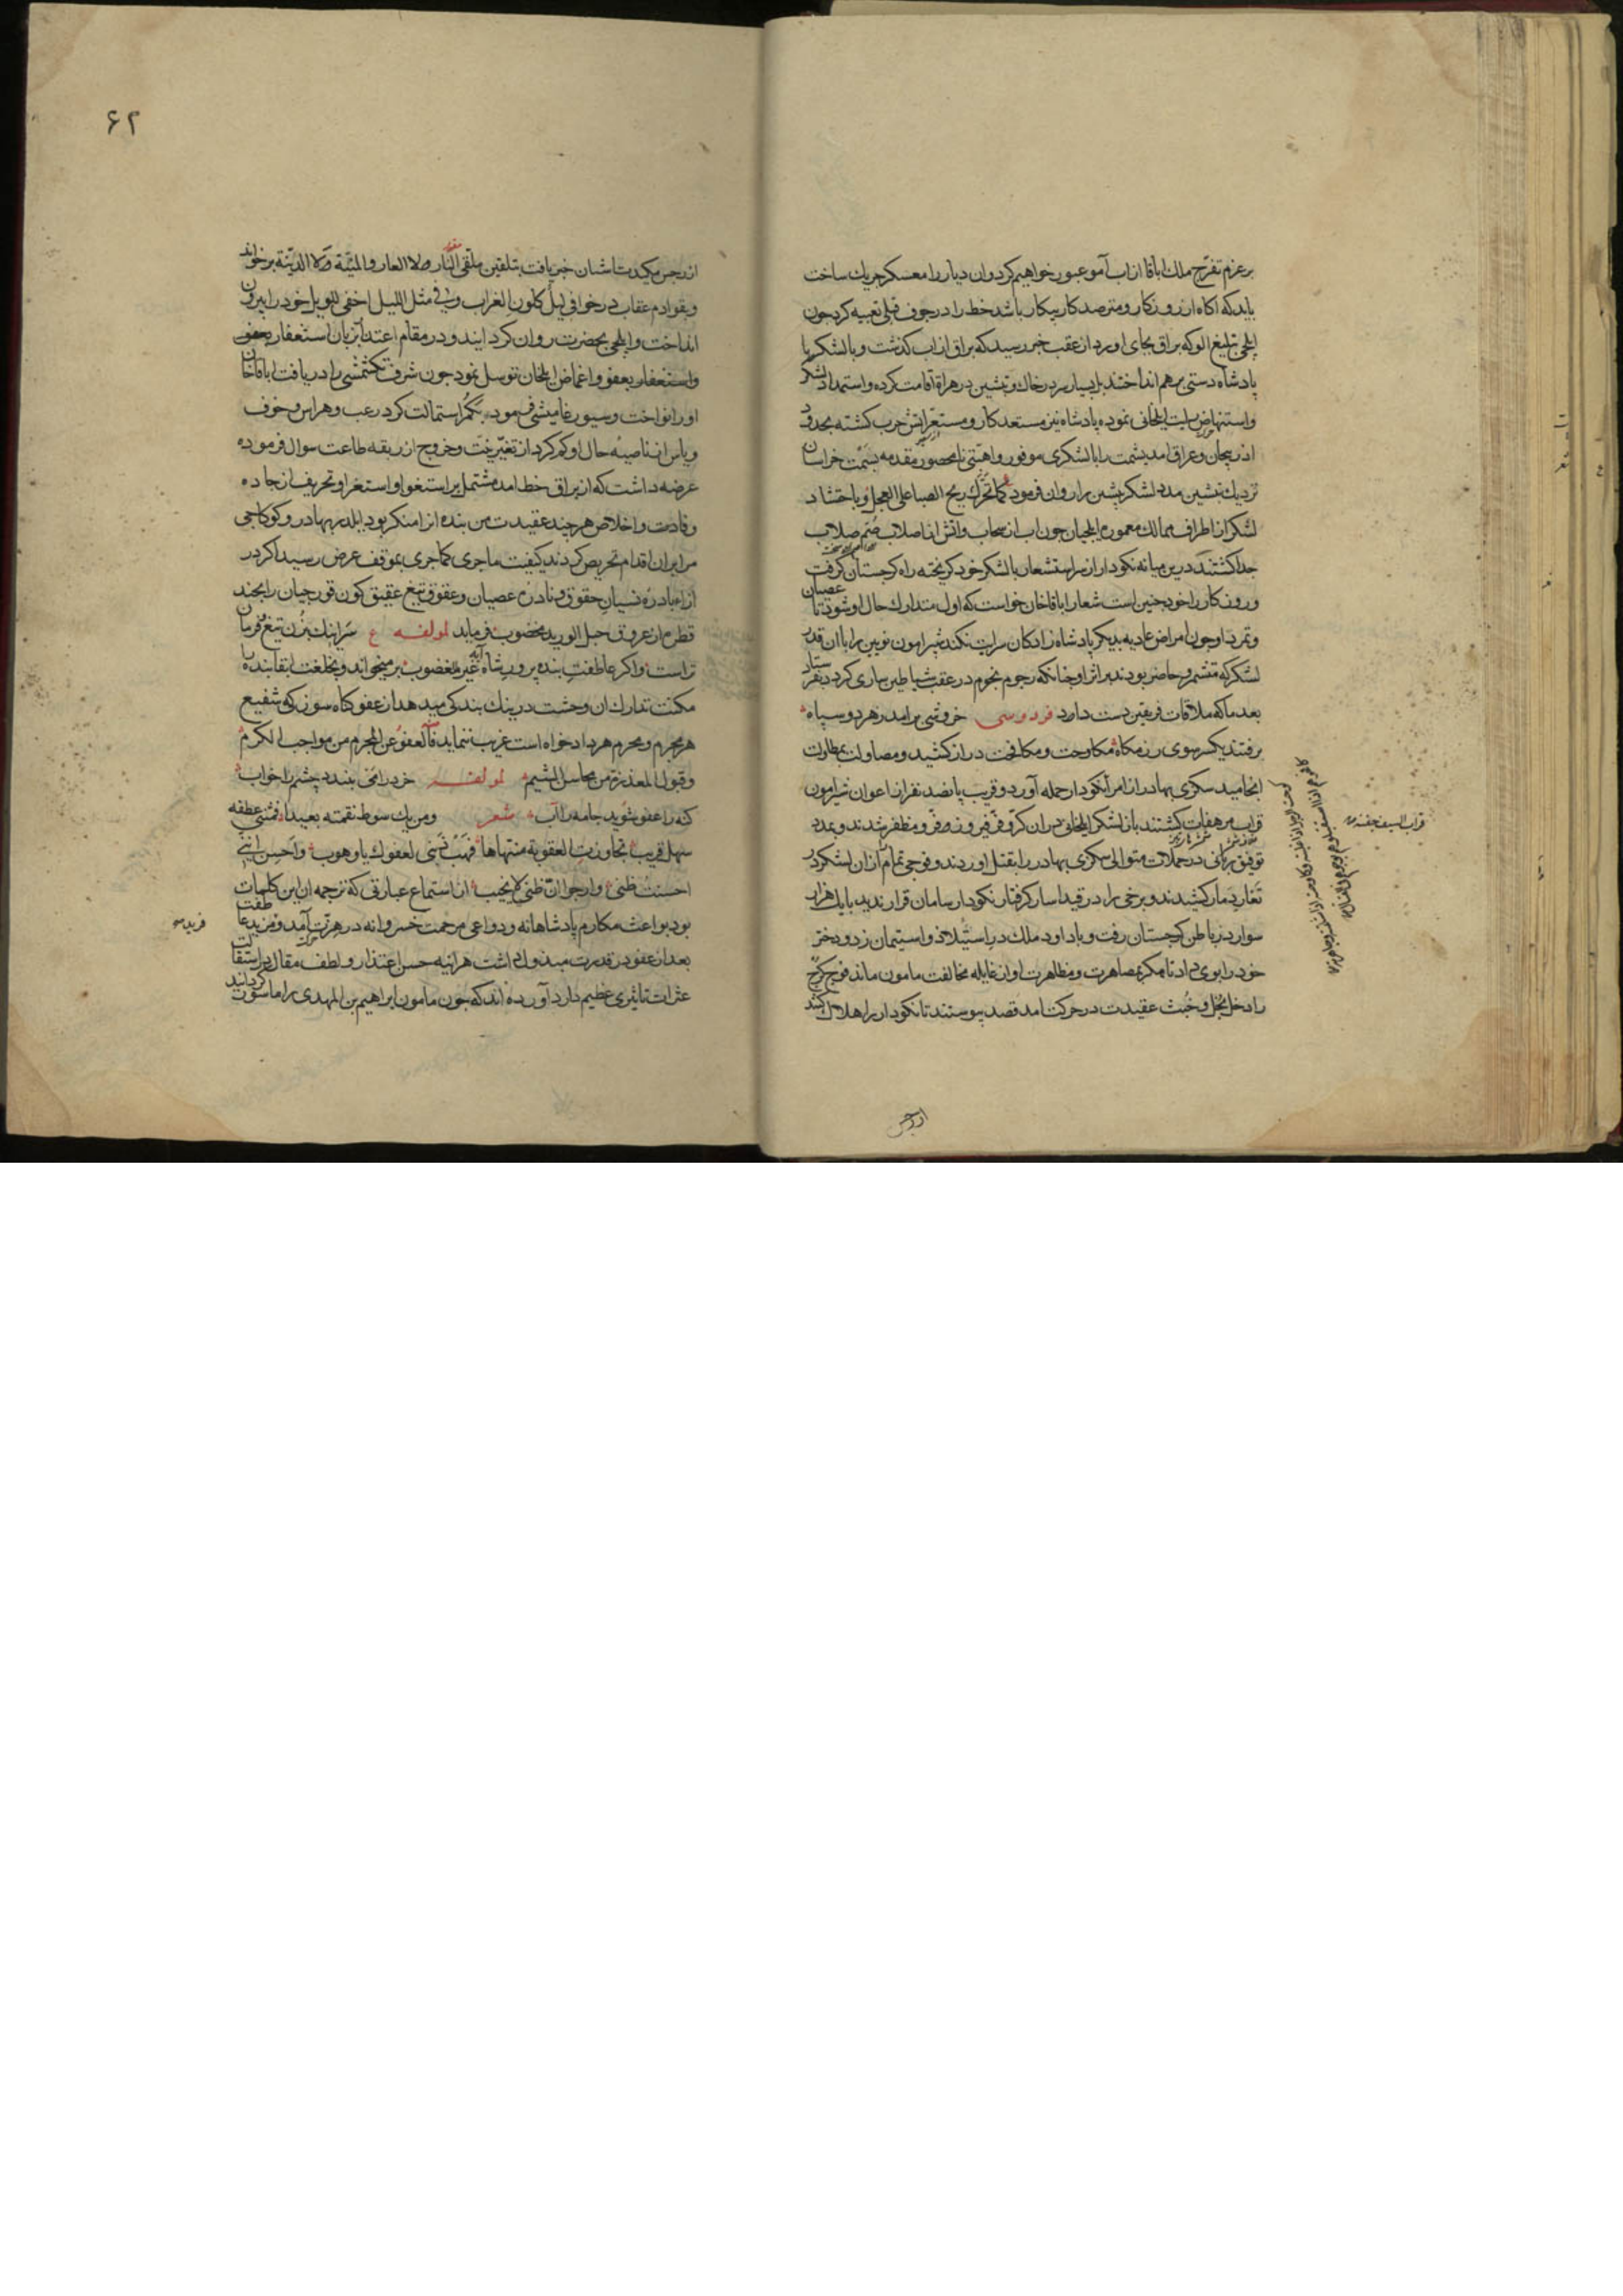 بر عزم تفرّج ملك اباقا از اب آمو عبور خواهیم کرد و ان دیار را معسکر جریك ساخت
باید که اکاه از روزکار و مترصد کار پیکار باشد خط را در جوف قبلی تعبیه کرد جون
ایلجی تبلیغ الوکه براق بجای اورد از عقب خبر رسید که براق از اب کذشت و با لشکر با
پادشاه دستی برهم انداختند بسیار سر در خاك و تبشین در هراة اقامت کرده و استمداد لشکر
و استنهاض رایت ایلخانی نموده پادشاه نیز مستعد کار و مستعر آتش حرب کشته بحدود
اذربیجان و عراق امد یشمت را با لشکری موفور و اهبتی نامحصور مقدمه بسمت خراسان
نزدیك تبشین مدد لشکر پیشین را روان فرمود کما تحرّك ریح الصبا علی العجل و باحتشاد
لشکر از اطراف ممالك معموره ایلجیان جون اب از سحاب و اتش از اصلاب صمّ صلاب
جدا کشتند درین میانه نکودار از سر استشعار با لشکر خود کریخته راه کرجستان کرفت
و روزکار را خود جنین است شعار اباقاخان خواست که اول متدارك حال او شود تا عصیان
و تمرد او جون امراض عادیه بدیکر پادشاه زادکان سرایت نکند شیرامون نویین را با ان قدر
لشکر که متشمر و حاضر بودند بر اثر او جنانکه رجوم نجوم در عقب شیاطین ساری کرد
بعد ما که ملاقات فریقین دست داد فردوسی خروشی برامد ز هر دو سپاه
برفتند یکسر سوی رزمکاه مکاوحت و مکافحت دراز کشید و مصاولت بمطاولت
انجامید سکزی بهادر از امراء نکودار حمله آورد و قریب پانصد نفر از اعوان شیرامون
قراب مرهفات کشتند باز لشکر ایلخانی در ان کرّ و فرّ فیروز و مظفر شدند و بمدد
توفیق یزدانی در حملات متوالی سکزی بهادر را بقتل اوردند و فوجی تمام از ان لشکر در
تغار دمار کشیدند و برخی را در قید اسار کرفتار نکودار سامان قرار ندید با یك هزار
سوار در باطن کرجستان رفت و با داود ملك در استیلاذ و استیمان زد و دختر
خود را بوی داد تا مکر بمصاهرت و مظاهرت او از غایله مخالفت مامون ماند فوج کرج
را دخل بخل و خبث عقیدت در حرکت امد قصد پیوستند تا نکودار را هلاك کنند
قراب السیف جفنه
۶۲
و بقوادم عقاب در خوافی لیل کلون الغراب و فی مثل اللیل اخفی للویل خود را بیرون
انداخت و ایلجی بحضرت روان کردانید و در مقام اعتذار بزبان استغفار
و استغفار بعفو و اغماض ایلخان توسل نمود جون شرف تکشمشی را دریافت اباقاخان
او را نواخت و سیورغامیشی فرمود استمالت کرد رعب و هراس و خوف
و یاس از ناصیه حال او کم کرد از تغیّر نیت و خروج از ربقه طاعت سوال فرموده
عرضه داشت که از براق خط امده مشتمل بر استغوا و استغرا و تحریف از جاده
وفادت و اخلاص هر جند عقیدت من بنده ازا منکر بود ایلدر بهادر و کوکاجی
مرا بر ان اقدام تحریص کردند کیفیت ماجری کماجری بموقف عرض رسید اکر در
ازاء بادره نسیان حقوق و نادره عصیان و عقوق تیغ عقیق کون قورجیان را بجند
قطره از عروق حبل الورید مخضوب فرماید لمولفه ع سر اینك بزن تیغ فرمان
تراست و اکر عاطفت بنده پرور شاه آیه غیر المغضوب بر میخواند و بخلعت ابقا بنده را
مکنت تدارك ان وحشت درینك بندکی میدهد از عفو کناه سوز که شفیع
هر مجرم و محرم هر دادخواه است غریب ننماید فالعفو عن المجرم من مواجب الکرم
و قبول المعذرة من محاسن الشیم لمولفه خرد را می ببندد چشم را خواب
کنه را عفو شوید جامه را آب شعر و من یك سوط نقمته بعیدا فمثنی عطفه
سهل قریب تجاوزت العقوبة منتهاها فهب ذنبی لعفوك یا وهوب و احسن اننی
احسنت ظنی و ارجو انّ ظنی لا یخیب از استماع عبارتی که ترجمه ان این کلمات
بود بواعث مکارم پادشاهانه و دواعی مرحمت خسروانه در هزّت آمد و مزید عاطفت
بعد از عفو در قدرت مبذول داشت هراینه حسن اعتذار و لطف مقال در استقالت
عثرات تاثیری عظیم دارد آورده اند که جون مامون ابراهیم بن المهدی را ماسور کردانید